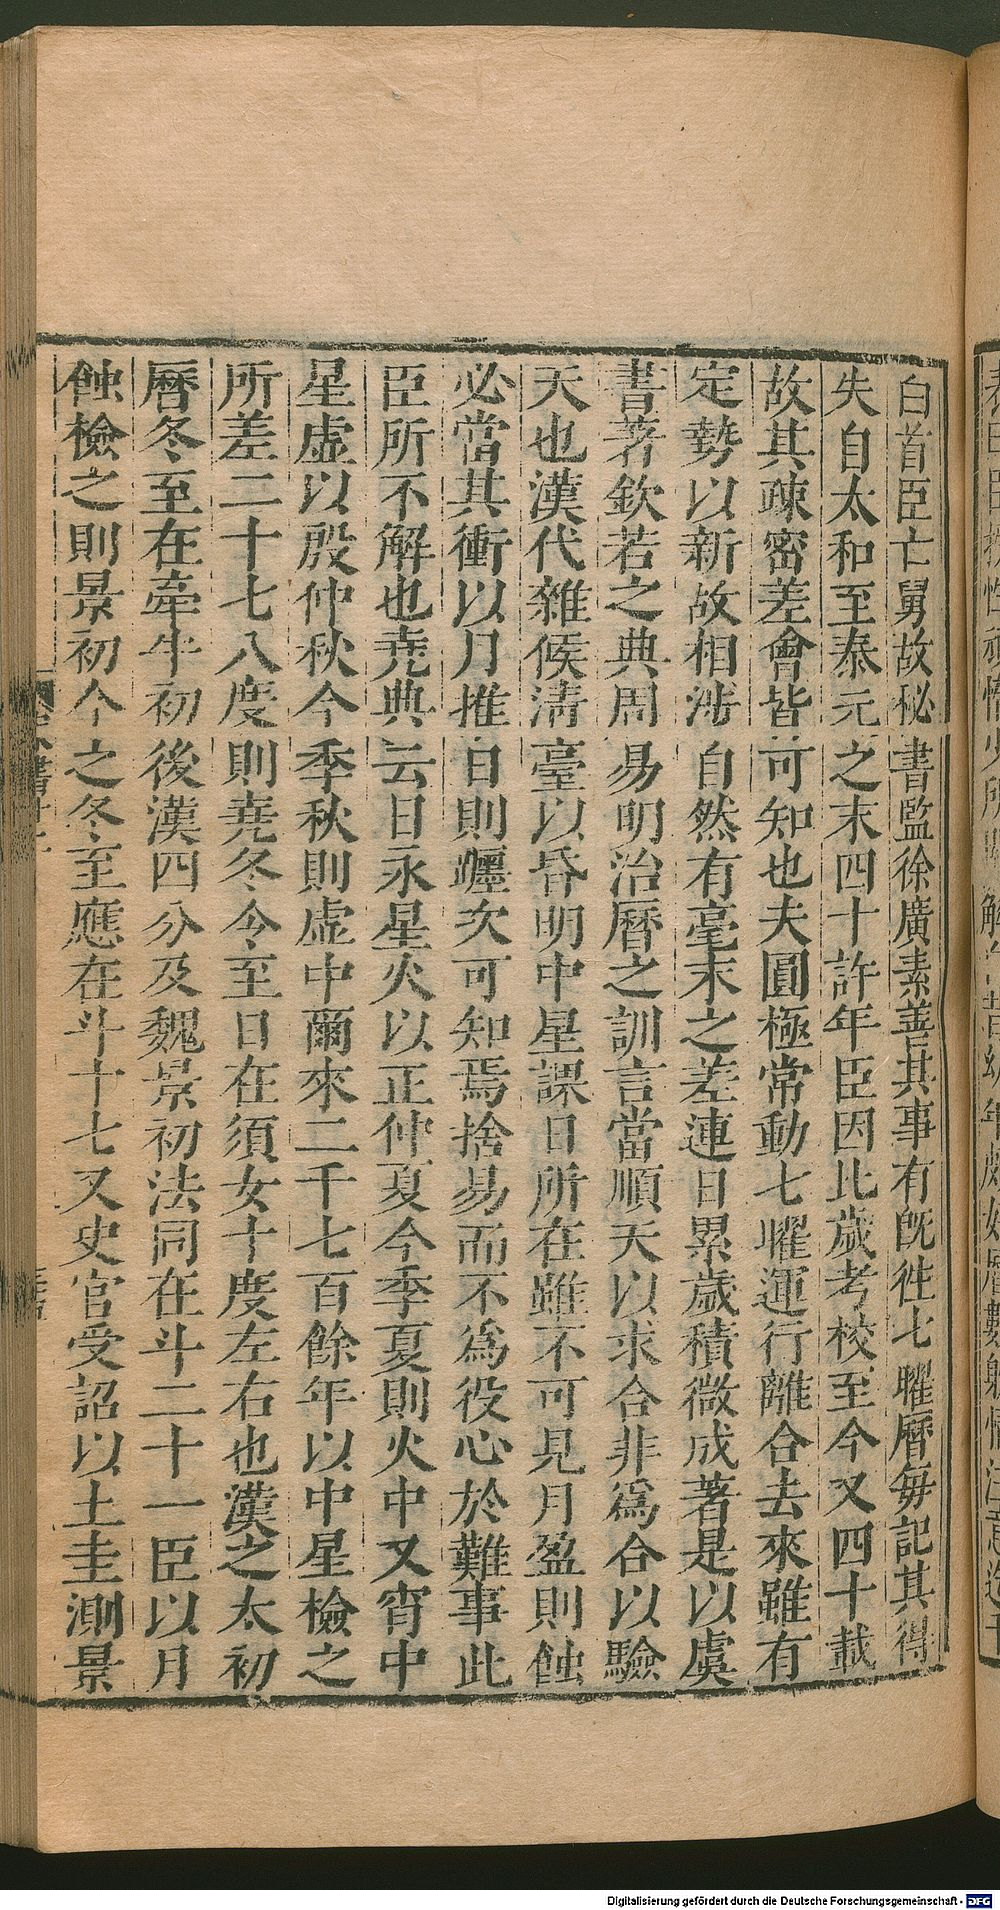 白首臣亡舅故秘書監徐廣素善其事有旣徃七曜曆每記其得
失自太和至泰元之末四十許年臣因比歲考校至今又四十載
故其疎密差會皆可知也夫圓極常動七曜運行離合去來雖有
定勢以新故相涉自然有毫末之差連日累歲積微成著是以虞
書著欽若之典周易明治曆之訓言當順天以求合非爲合以驗
天也漢代雜候淸臺以昏明中星課日所在雖不可見月盈則蝕
必當其衝以月推日則躔次可知焉捨易而不爲役心於難事此
臣所不解也堯典云日永星火以正仲夏今季夏則火中又宵中
星虛以殷仲秋今季秋則虛中爾來二千七百餘年以中星檢之
所差二十七八度則堯冬令至日在須女十度左右也漢之太初
曆冬至在牽牛初後漢四分及魏景初法同在斗二十一臣以月
蝕檢之則景初今之冬至應在斗十七又史官受詔以土圭測景
Digitalisierung gefördert durch die Deutsche Forschungsgemeinschaft - DFG